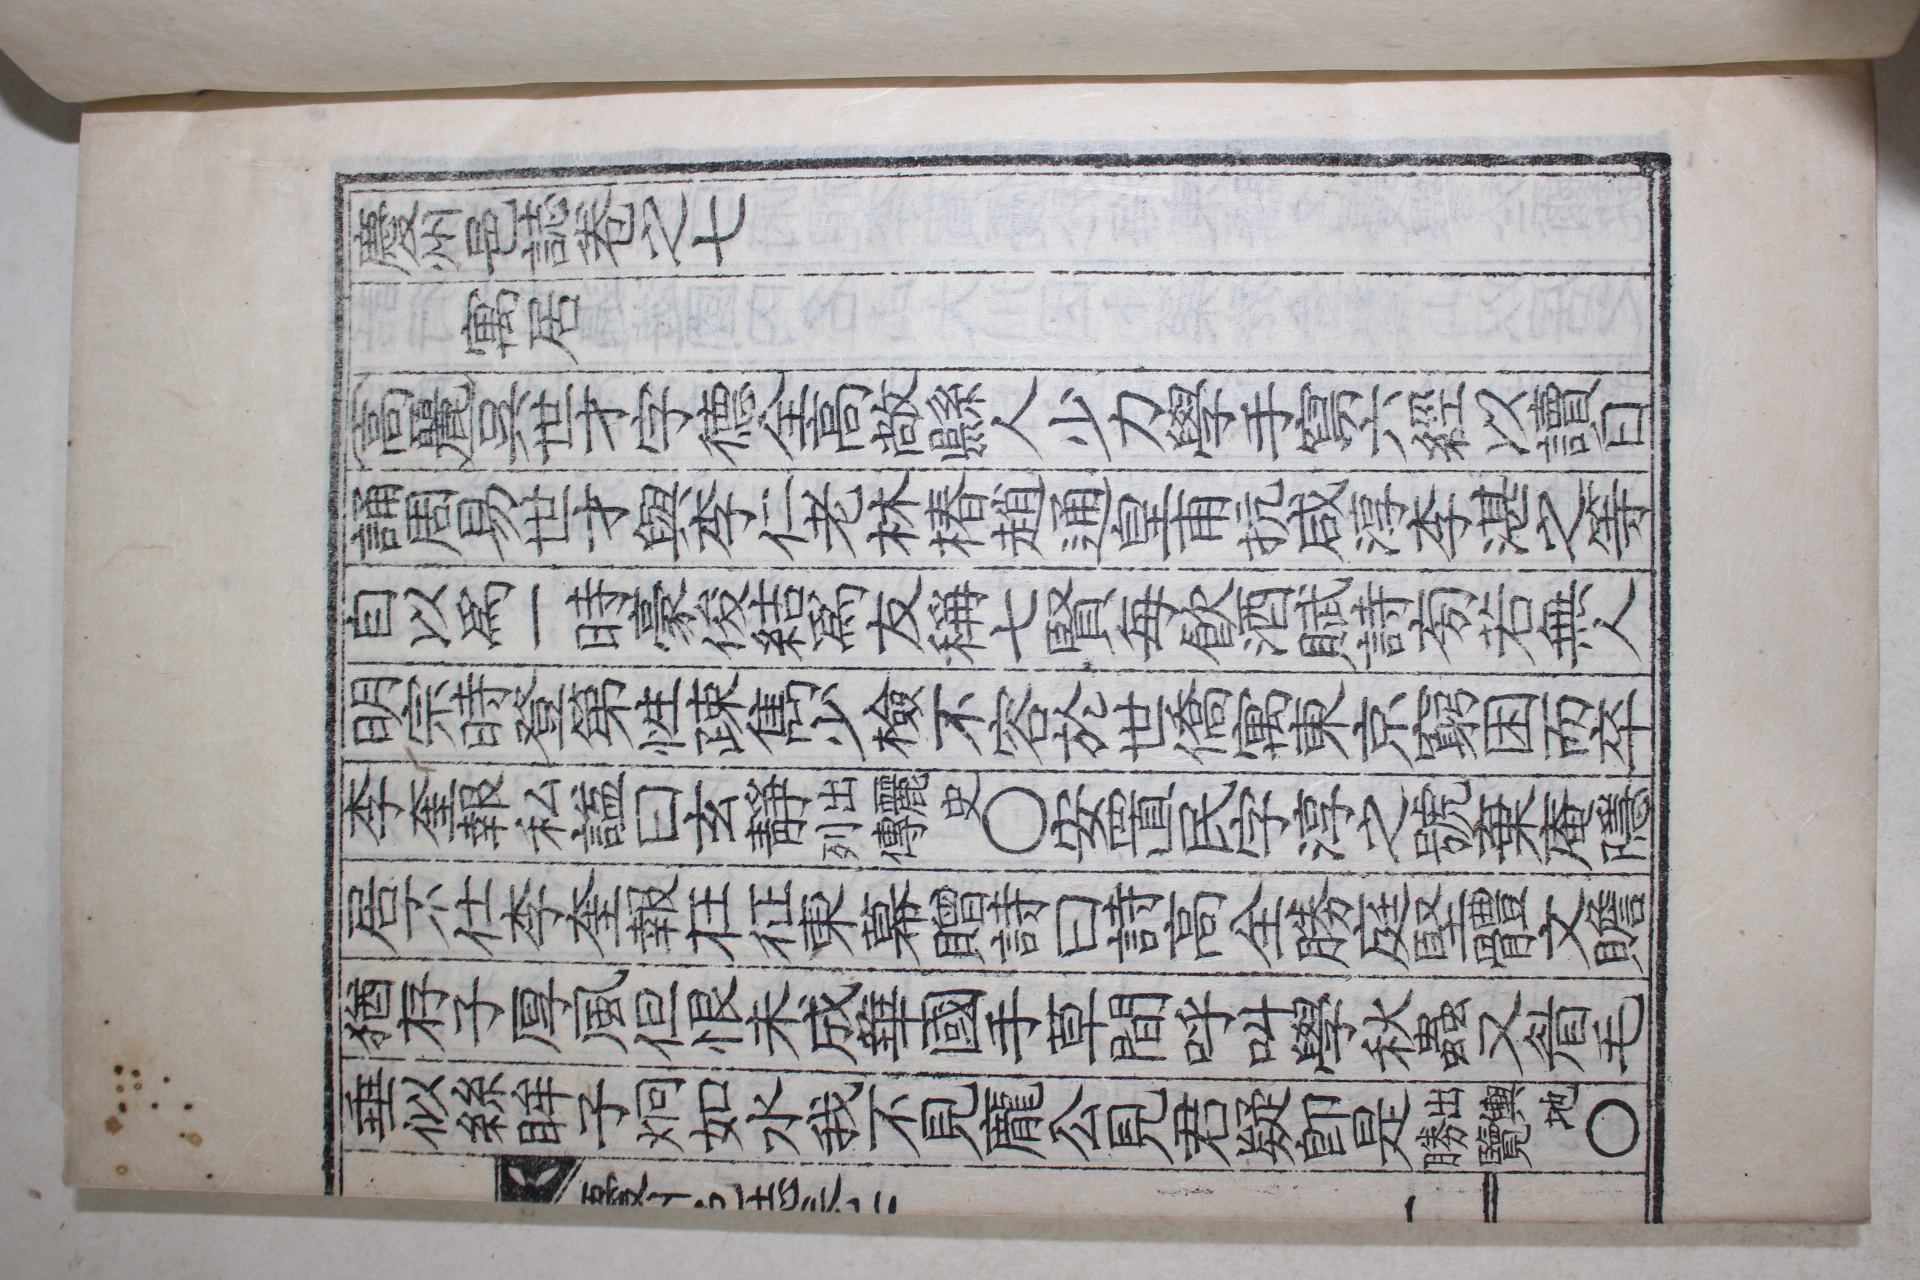 慶州邑誌卷之七
寓居
高麗吳世才字德全高敞縣人少力學手寫六經以讀日
誦周易世才與李仁老林椿趙通皇甫抗咸淳李湛之等
自以爲一時豪俊結爲友稱七賢每飮酒賦詩旁若無人
明宗時登第性踈雋少檢不容於世僑寓東京窮困而卒
李奎報私諡曰玄靜出麗史列傳○安置民字淳之號棄庵隱
居不仕李奎報在征東幕贈詩曰詩高全勝庭堅體文贍
猶存子厚風但恨未成華國手草間呼叫學秋蟲又眉毛
垂似絲眸子炯如水我不見龐公見君疑卽是出輿地勝覽○